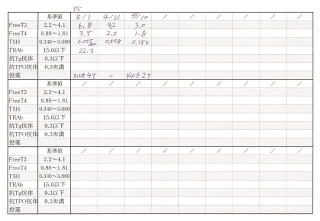 基準値 4/1 4/21 5/10 / / / / /
FreeT3 2.2～4.1 6.8 42 3.0
FreeT4 0.88～1.81 3.5 2.0 1.8
TSH 0.340～3.880 0.005 0.008 0.180
TRAb 15.0以下 22.3
抗Tg抗体 0.3以下
抗TPO抗体 0.3未満
投薬
基準値 / / / / / / / /
FreeT3 2.2～4.1
FreeT4 0.88～1.81
TSH 0.340～3.880
TRAb 15.0以下
抗Tg抗体 0.3以下
抗TPO抗体 0.3未満
投薬
基準値 / / / / / / / /
FreeT3 2.2～4.1
FreeT4 0.88～1.81
TSH 0.340～3.880
TRAb 15.0以下
抗Tg抗体 0.3以下
抗TPO抗体 0.3未満
投薬